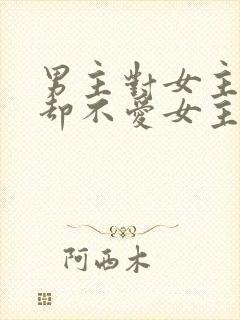 男主對女主
却不愛女主
阿西木